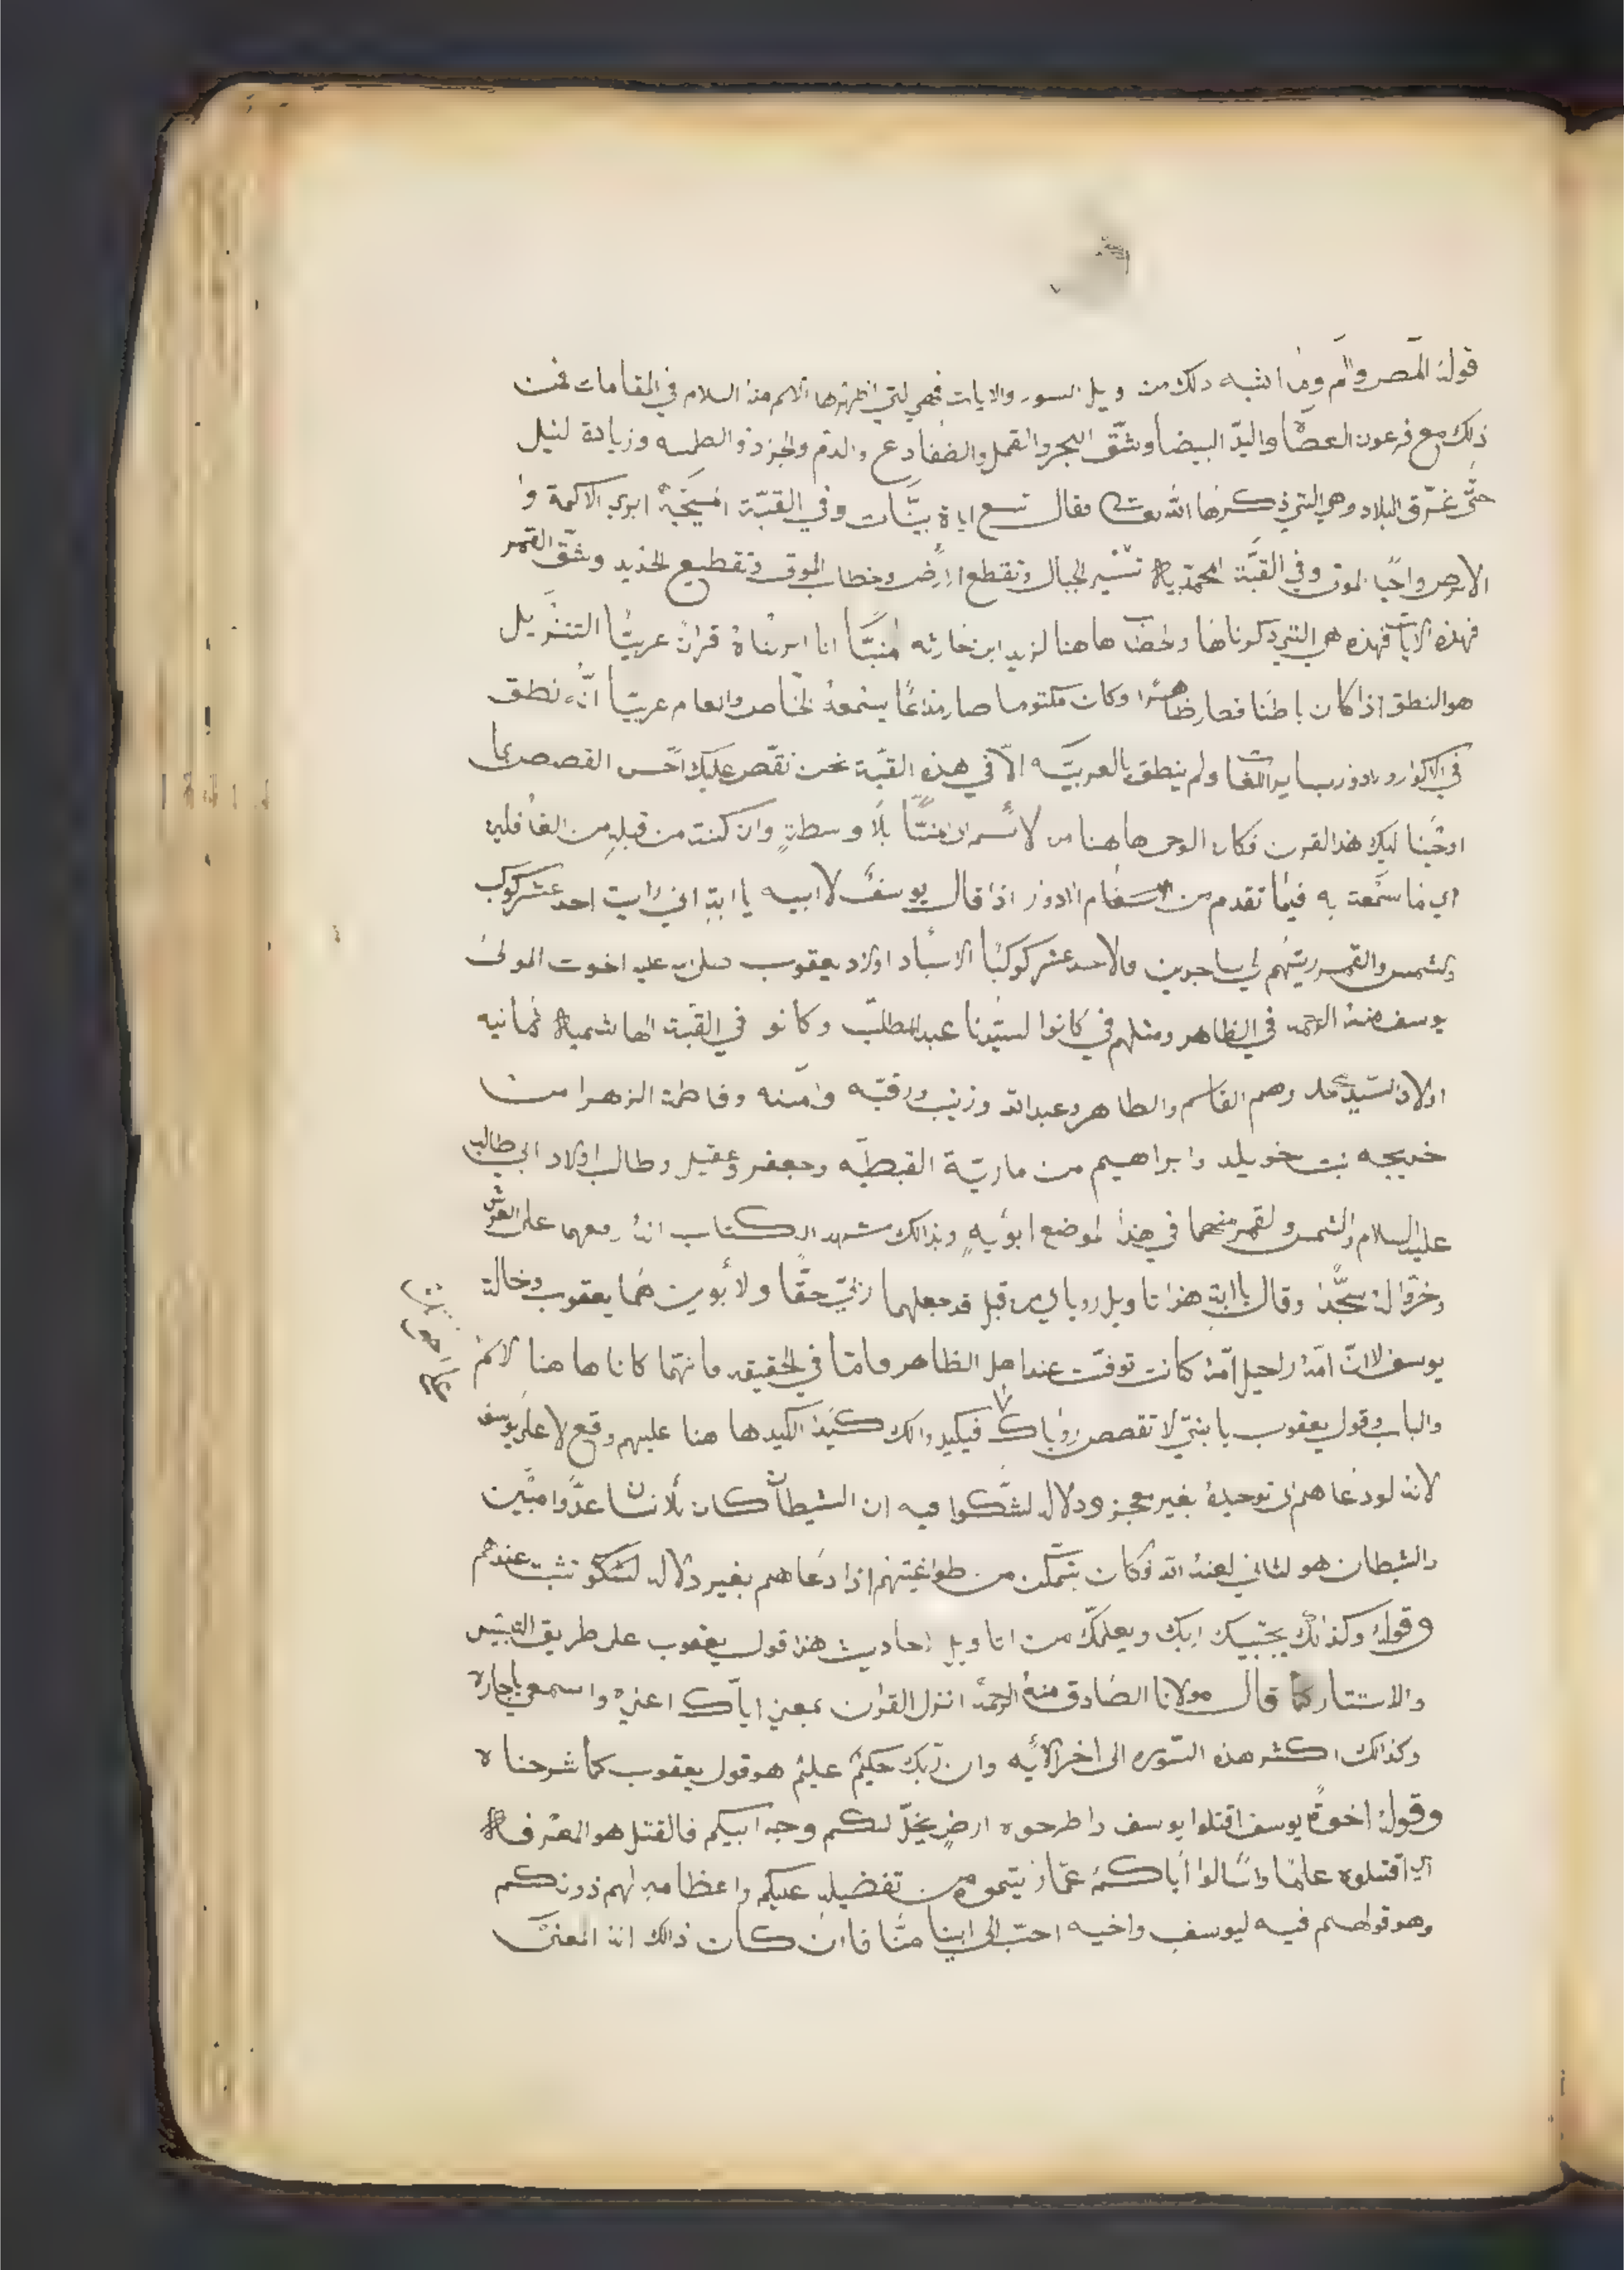 قوله المصر والم وما اشبه ذلك من ويل السور والايات فهي لتي اظهرها الاسم منه السلام في المقامات فمن
ذلك مع فرعون العصا واليد البيضا وشق البحر والقمل والضفادع والدم والجزذ والطمسه وزيادة لنيل
حتى غرق البلاد وهي التي ذكرها الله تعالى فقال تسع اياة بينات وفي القبة المسيحية ابري الاكمة و
الابرص واحيا لموتى وفي القبة المحمدية تسير الجبال وتقطع الارض وخطاب الموتى وتقطيع الحديد وشق القمر
فهذه الايات فهذه هي التي ذكرناها ولخصنا هاهنا لزيد ابن حارثه منبيا انا انزلناه قران عربيا التنزيل
هو النطق اذا كان باطنا فصار ظاهرا وكان مكتوما صار مذاعا يسمعه الخاص والعام عربيا انه نطق
في الاكوار والادوار بساير اللغات ولم ينطق بالعربيه الا في هذه القبة نحن نقص عليك احسن القصص بما
اوحينا ليك هذ القرن فكان الوحي هاهنا من لاسم ان منبيا بلا وسطة وان كنت من قبله من الغافلين
اي ما سمعت به فيما تقدم من الادوار اذ قال يوسف لابيه يا ابة اني رايت احد عشر كوكب
والشمس والقمر ريتهم لي ساجدين فالاحد عشر كوكبا الاسباد اولاد يعقوب صلى الله عليه اخوت المولى
يوسف منه الرحمه في الظاهر ومثلهم في كانوا لسيدنا عبد المطلب وكانو في القبة الهاشمية ثمانيه
اولاد السيد محمد وهم القاسم والطاهر وعبد الله وزنيب ورقيه وامنه وفاطمة الزهرا من
خديجه بنت خويلد وابراهيم من مارية القبطيه وجعفر وعقيل وطالب اولاد ابي طالب
عليه السلام والشمس ولقمر منهما في هذا لموضع ابويه وبذالك شهد الكتاب انه رفعهما على العرش
وخروا له سجدا وقال يا ابة هذا تاويل روياي من قبل قد جعلهما ربي حقا ولابوين هما يعقوب وخالة
يوسف لاان امه راحيل امه كانت توفت عند اهل الظاهر واما في الحقيقه فانهما كانا هاهنا لاسم
والباب وقول يعقوب يا بني لا تقصص روياك فيكيد والك كيدا الكيد هاهنا عليهم وقع لا على يوسف
لانه لو دعاهم الى توحيده بغير معجز ودلال لشكوا فيه ان الشيطان كان للانسان عدوا مبين
والشيطان هو لثاني لعنه الله فكان يتمكن من طواغيتهم اذا دعاهم بغير دلال لشكو تثبت عندهم
وقوله وكذالك يجتبيك ربك ويعلمك من تاويل احاديث هذا قول يعقوب على طريق التلبيس
والاستتار كما قال مولانا الصادق منه الرحمة انزل القران بمعنى اياك اعني واسمعي يا جاره
وكذالك اكثر هذه السوره الى اخر الايه وان ربك حكيم عليم هو قول يعقوب كما شرحناه
وقول اخوة يوسف اقتلوا يوسف واطرحوه ارض يخل لكم وجه ابيكم فالقتل هو المعرفة
اي اقتلوه علما واسالوا اباكم عما ذ يتموه من تفضيله عليكم واعظامه لهم دونكم
وهو قولهم فيه ليوسف واخيه احب الى ابينا منا فاان كان ذالك انه المعنى